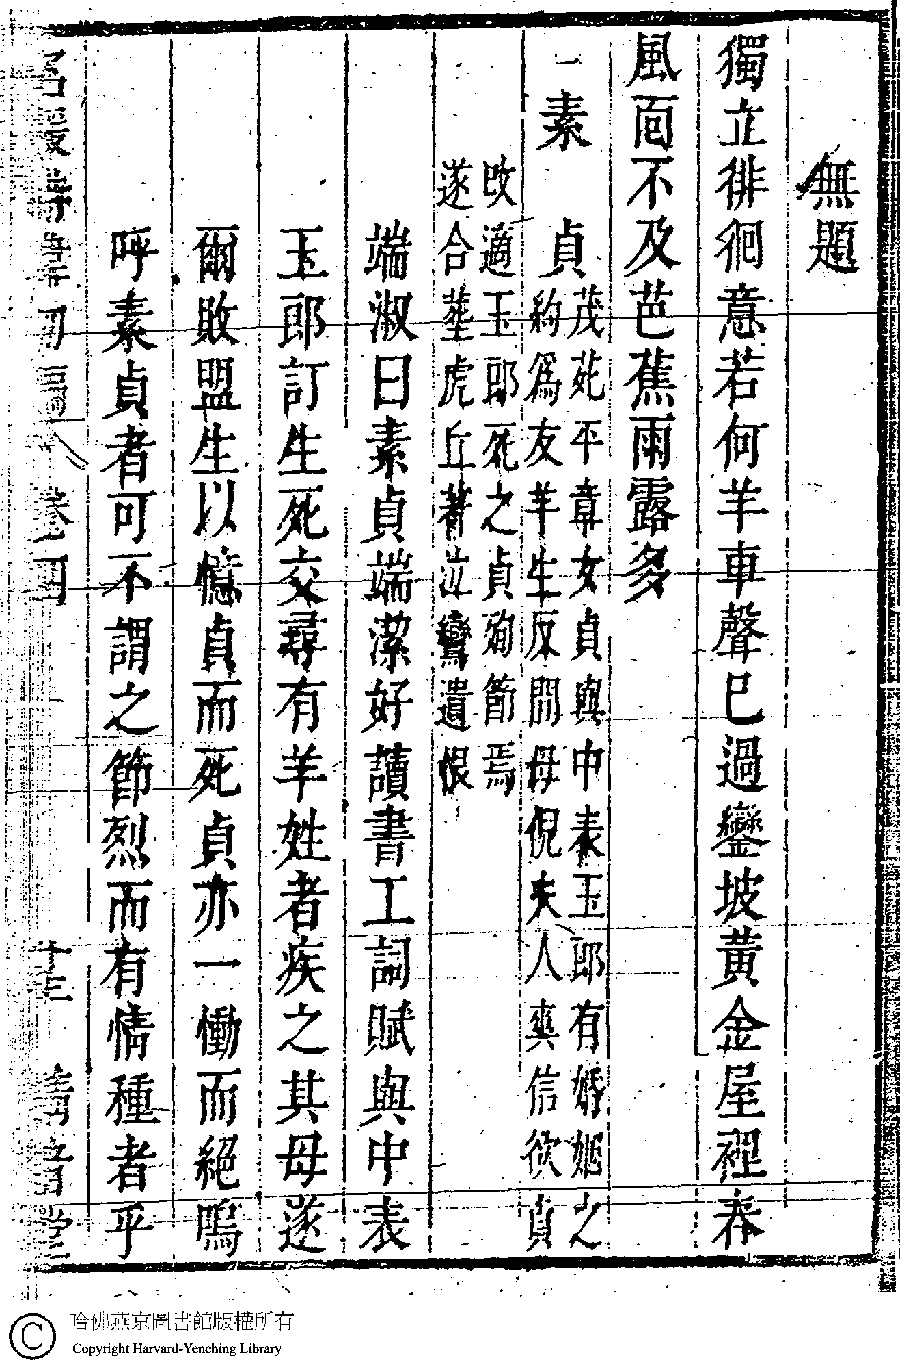 無題
獨立徘徊意若何羊車聲已過鑾坡黃金屋裡春
風面不及芭蕉雨露多
一素貞
茂苑平章女貞與中表玉郎有婚姻之
約爲友羊生反間母倪夫人爽信欲貞
改適玉郎死之貞殉節焉
遂合葬虎丘著泣鸞遺恨
端淑曰素貞端潔好讀書工詞賦與中表
玉郎訂生死交尋有羊姓者疾之其母遂
爾敗盟生以憶貞而死貞亦一慟而絕嗚
呼素貞者可不謂之節烈而有情種者乎
名媛詩緯初編 卷之四 十三 清音堂
哈佛燕京圖書館版權所有
Copyright Harvard-Yenching Library